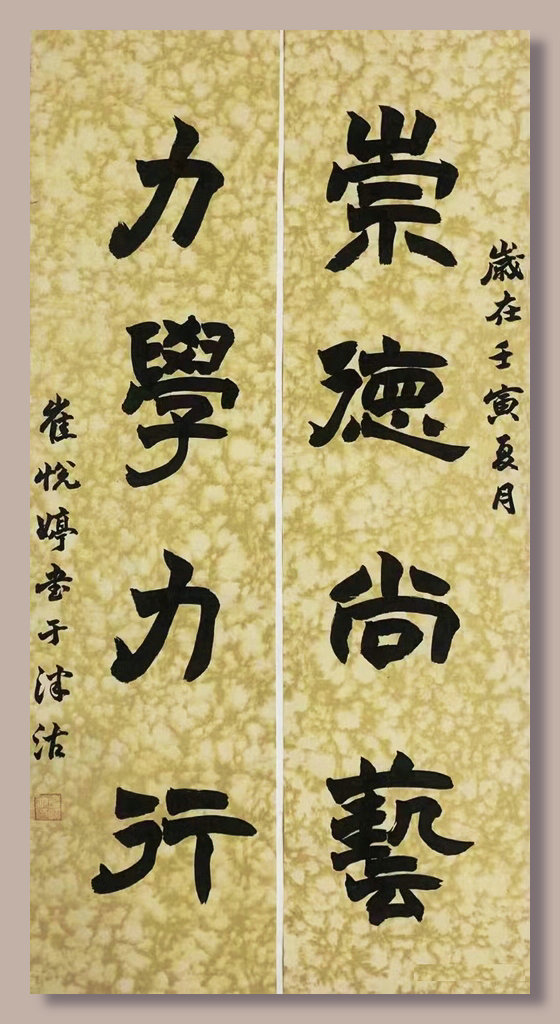 歲在壬寅夏月
崇德尚藝
力學力行
崔悅婷书于津沽